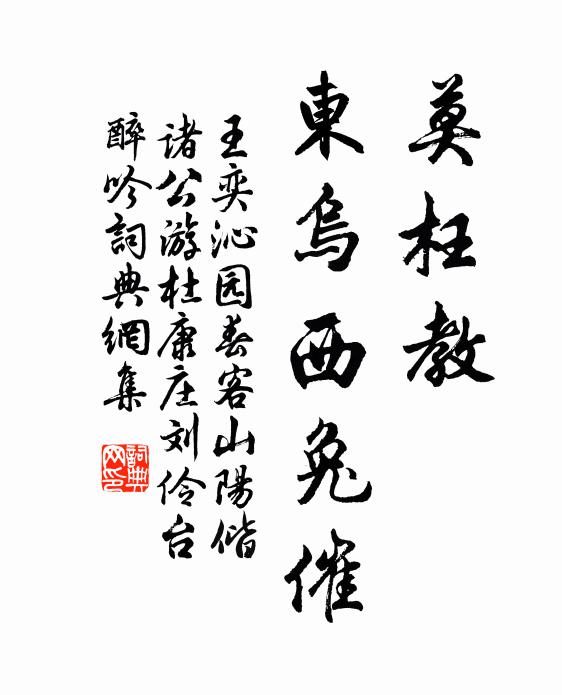 莫枉教
東烏西兔催
王奕沁园春客山陽偕
诸公游杜康庄刘伶台
醉吟詞典網集
詞典
网印